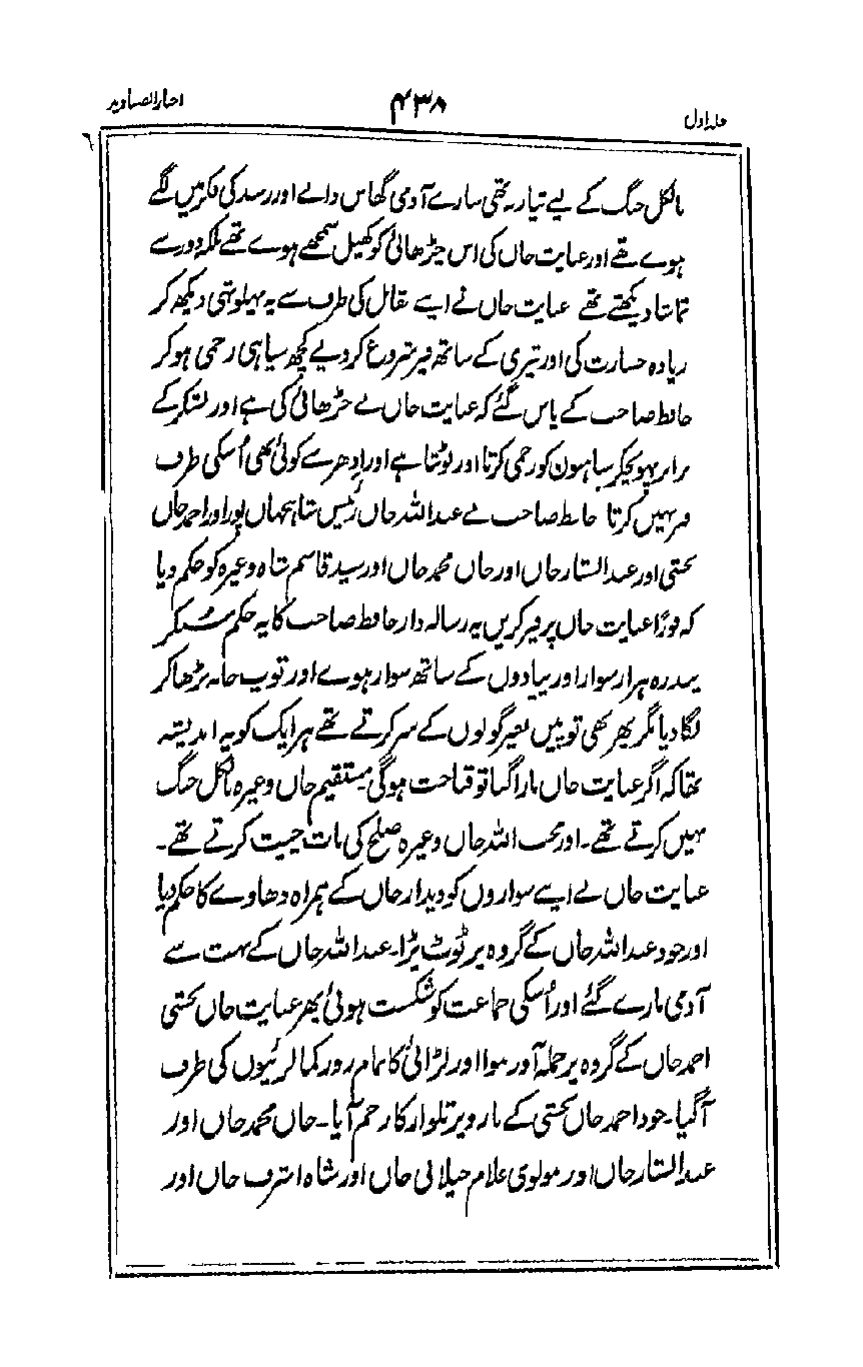 جلد اول
۴۳۸
اخبار الصنادید
بالکل جنگ کے لیے تیار نہ تھی سارے آدمی گھاس دانے اور رسد کی فکر میں لگے
ہوے تھے اور عنایت خاں کی اس چڑھائی کو کھیل سمجھے ہوے تھے بلکہ دور سے
تماشا دیکھتے تھے عنایت خاں نے اپنے مقابل کی طرف سے یہ پہلوتہی دیکھ کر
زیادہ جسارت کی اور تیزی کے ساتھ فیر شروع کر دیے کچھ سپاہی زخمی ہو کر
حافظ صاحب کے پاس گئے کہ عنایت خاں نے چڑھائی کی ہے اور لشکر کے
برابر پہونچکر سپاہیون کو زخمی کرتا اور لوٹتا ہے اور ادھر سے کوئی بھی اُسکی طرف
فیر نہیں کرتا حافظ صاحب نے عبداللہ خاں رئیس شاہجہاں پور اور احمد خاں
بخشی اور عبدالستار خاں اور خاں محمد خاں اور سید قاسم شاہ وغیرہ کو حکم دیا
کہ فوراً عنایت خاں پر فیر کریں یہ رسالہ دار حافظ صاحب کا یہ حکم سُنکر
پندرہ ہزار سوار اور پیادوں کے ساتھ سوار ہوے اور توپ خانہ بڑھا کر
لگا دیا مگر پھر بھی توپیں بغیر گولوں کے سر کرتے تھے ہر ایک کو یہ اندیشہ
تھا کہ اگر عنایت خاں مارا گیا تو قباحت ہوگی مستقیم خاں وغیرہ بالکل جنگ
نہیں کرتے تھے۔ اور محب اللہ خاں وغیرہ صلح کی بات چیت کرتے تھے۔
عنایت خاں نے اپنے سواروں کو دیدار خاں کے ہمراہ دھاوے کا حکم دیا
اور خود عبداللہ خاں کے گروہ پر ٹوٹ پڑا۔ عبداللہ خاں کے بہت سے
آدمی مارے گئے اور اُسکی جماعت کو شکست ہوئی پھر عنایت خاں بخشی
احمد خاں کے گروہ پر حملہ آور ہوا اور لڑائی کا تمام زور کمالزئیوں کی طرف
آ گیا۔ خود احمد خاں بخشی کے بازو پر تلوار کا زخم آیا۔ خاں محمد خاں اور
عبدالستار خاں اور مولوی غلام جیلانی خاں اور شاہ اشرف خاں اور